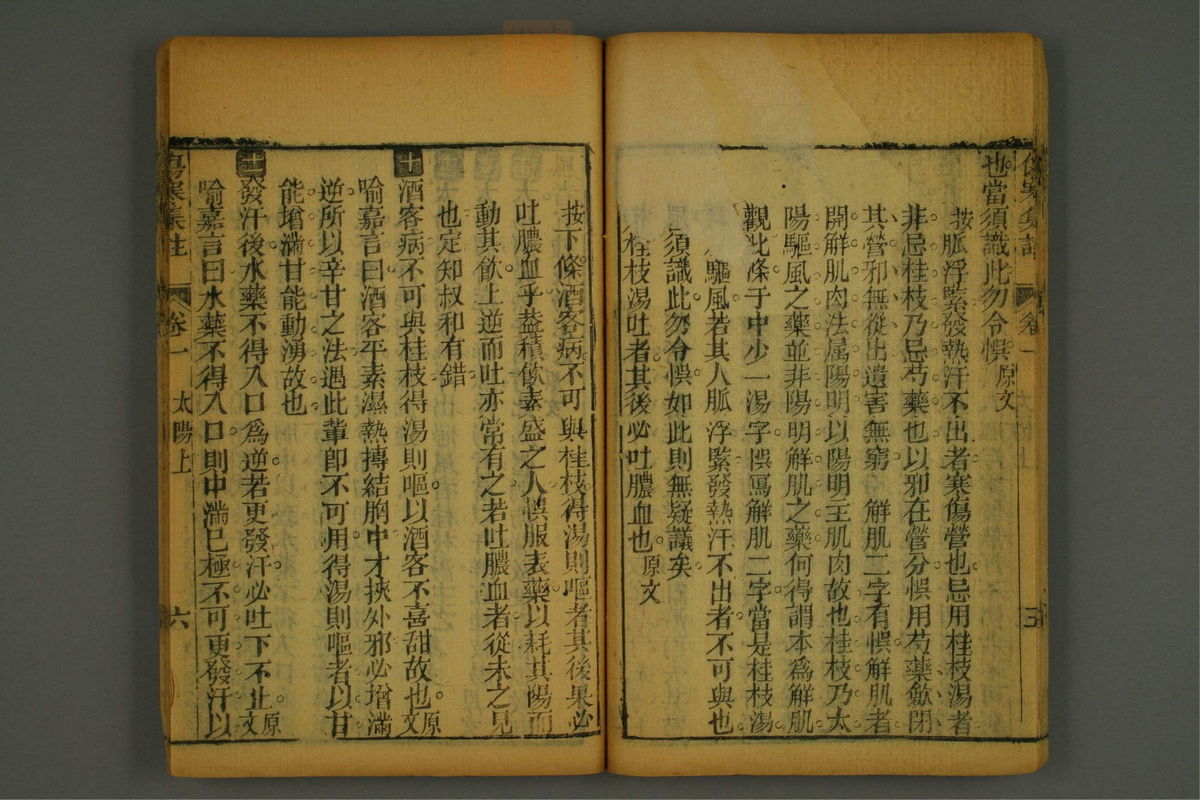 也當須識此勿令悞原文
按脈浮緊發熱汗不出者寒傷營也忌用桂枝湯者
非忌桂枝乃忌芍藥也以邪在營分悞用芍藥歛閉
其營邪無從出遺害無窮 解肌二字有悞解肌者
開解肌肉法属陽明以陽明主肌肉故也桂枝乃太
陽驅風之藥並非陽明解肌之藥何得謂本爲解肌
觀此條于中少一湯字悞寫解肌二字當是桂枝湯
驅風若其人脈浮緊發熱汗不出者不可與也
須識此勿令悞如此則無疑議矣
桂枝湯吐者其後必吐膿血也原文
傷寒集註 卷一 五
按下條酒客病不可與桂枝得湯則嘔者其後果必
吐膿血乎葢積飲素盛之人悞服表藥以耗其陽而
動其飲上逆而吐亦常有之若吐膿血者從未之見
也定知叔和有錯
十酒客病不可與桂枝得湯則嘔以酒客不喜甜故也原文
喻嘉言曰酒客平素濕熱搏結胸中才挾外邪必增滿
逆所以辛甘之法遇此輩卽不可用得湯則嘔者以甘
能增滿甘能動湧故也
發汗後水藥不得入口爲逆若更發汗必吐下不止原文
喻嘉言曰水藥不得入口則中滿已極不可更發汗以
傷寒集註 卷一 太陽上 六